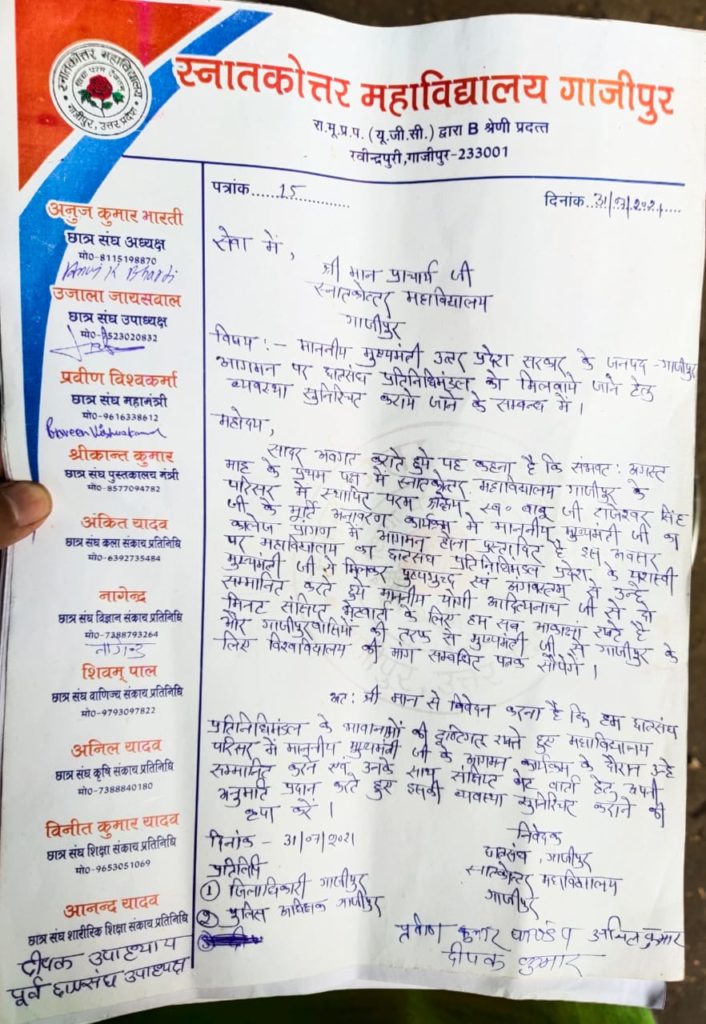 स्नातकोत्तर महाविद्यालय
गाजीपुर, उत्तर प्रदेश
स्नातकोत्तर महाविद्यालय गाजीपुर
रा.मू.प्र.प. (यू.जी.सी.) द्वारा B श्रेणी प्रदत्त
रवीन्द्रपुरी,गाजीपुर-233001
पत्रांक......15............
दिनांक..31/07/2021....
अनुज कुमार भारती
छात्र संघ अध्यक्ष
मो०-8115198870
Anuj K Bharti
उजाला जायसवाल
छात्र संघ उपाध्यक्ष
मो०-9523020832
प्रवीण विश्वकर्मा
छात्र संघ महामंत्री
मो०-9616338612
Praveen Vishwakarma
श्रीकान्त कुमार
छात्र संघ पुस्तकालय मंत्री
मो०-8577094782
अंकित यादव
छात्र संघ कला संकाय प्रतिनिधि
मो०-6392735484
नागेन्द्र
छात्र संघ विज्ञान संकाय प्रतिनिधि
मो०-7388793264
नागेन्द्र
शिवम् पाल
छात्र संघ वाणिज्य संकाय प्रतिनिधि
मो०-9793097822
अनिल यादव
छात्र संघ कृषि संकाय प्रतिनिधि
मो०-7388840180
विनीत कुमार यादव
छात्र संघ शिक्षा संकाय प्रतिनिधि
मो०-9653051069
आनन्द यादव
छात्र संघ शारीरिक शिक्षा संकाय प्रतिनिधि
दीपक उपाध्याय
पूर्व छात्रसंघ उपाध्यक्ष
सेवा में,
श्री मान प्राचार्य जी
स्नातकोत्तर महाविद्यालय
गाजीपुर
विषय :- माननीय मुख्यमंत्री उत्तर प्रदेश सरकार के जनपद-गाजीपुर
आगमन पर छात्रसंघ प्रतिनिधिमंडल को मिलवाये जाने हेतु
व्यवस्था सुनिश्चित कराये जाने के सम्बन्ध में।
महोदय,
सादर अवगत कराते हुये यह कहना है कि संभवत: अगस्त
माह के प्रथम पक्ष में स्नातकोत्तर महाविद्यालय गाजीपुर के
परिसर में स्थापित परम श्रद्धेय स्व० बाबू जी राजेश्वर सिंह
जी के मूर्ति अनावरण कार्यक्रम में माननीय मुख्यमंत्री जी का
कालेज प्रांगण में आगमन होना प्रस्तावित है इस अवसर
पर महाविद्यालय का छात्रसंघ प्रतिनिधिमंडल प्रदेश के यशस्वी
मुख्यमंत्री जी से मिलकर पुष्पगुच्छ एवं अंगवस्त्रम् से उन्हे
सम्मानित करते हुये माननीय योगी आदित्यनाथ जी से दो
मिनट संक्षिप्त भेंटवार्ता के लिए हम सब आकांक्षा रखते है
और गाजीपुरवासियों की तरफ से मुख्यमंत्री जी से गाजीपुर के
लिए विश्वविद्यालय की मांग सम्बंधित पत्रक सौपेंगे।
अत: श्री मान से निवेदन करना है कि हम छात्रसंघ
प्रतिनिधिमंडल के भावानाओं को दृष्टिगत रखते हुए महाविद्यालय
परिसर में माननीय मुख्यमंत्री जी के आगमन कार्यक्रम के दौरान उन्हे
सम्मानित करने एवं उनके साथ संक्षिप्त भेंट वार्ता हेतु अपनी
अनुमति प्रदान करते हुए इसकी व्यवस्था सुनिश्चित कराने की
कृपा करें।
दिनांक - 31/07/2021
निवेदक
छात्रसंघ, गाजीपुर
स्नातकोत्तर महाविद्यालय
गाजीपुर
प्रतिलिपि
① जिलाधिकारी गाजीपुर
② पुलिस अधिक्षक गाजीपुर
प्रवीण कुमार पाण्डेय अनिल कुमार
दीपक कुमार